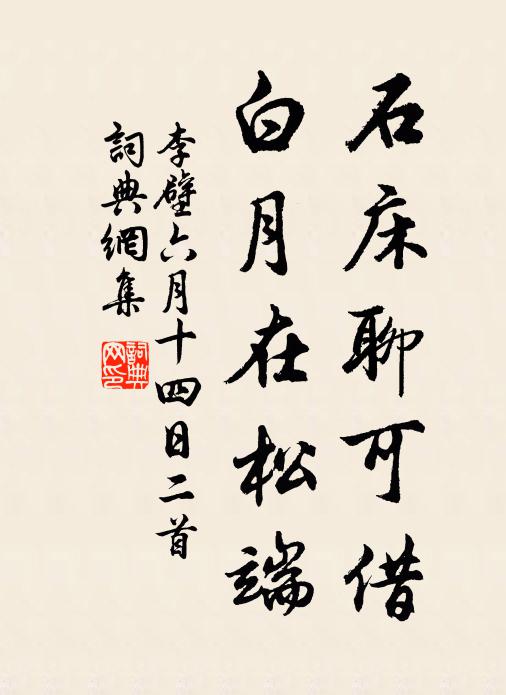 石床聊可借
白月在松端
李壁六月十四日二首
詞典網集
詞典网印